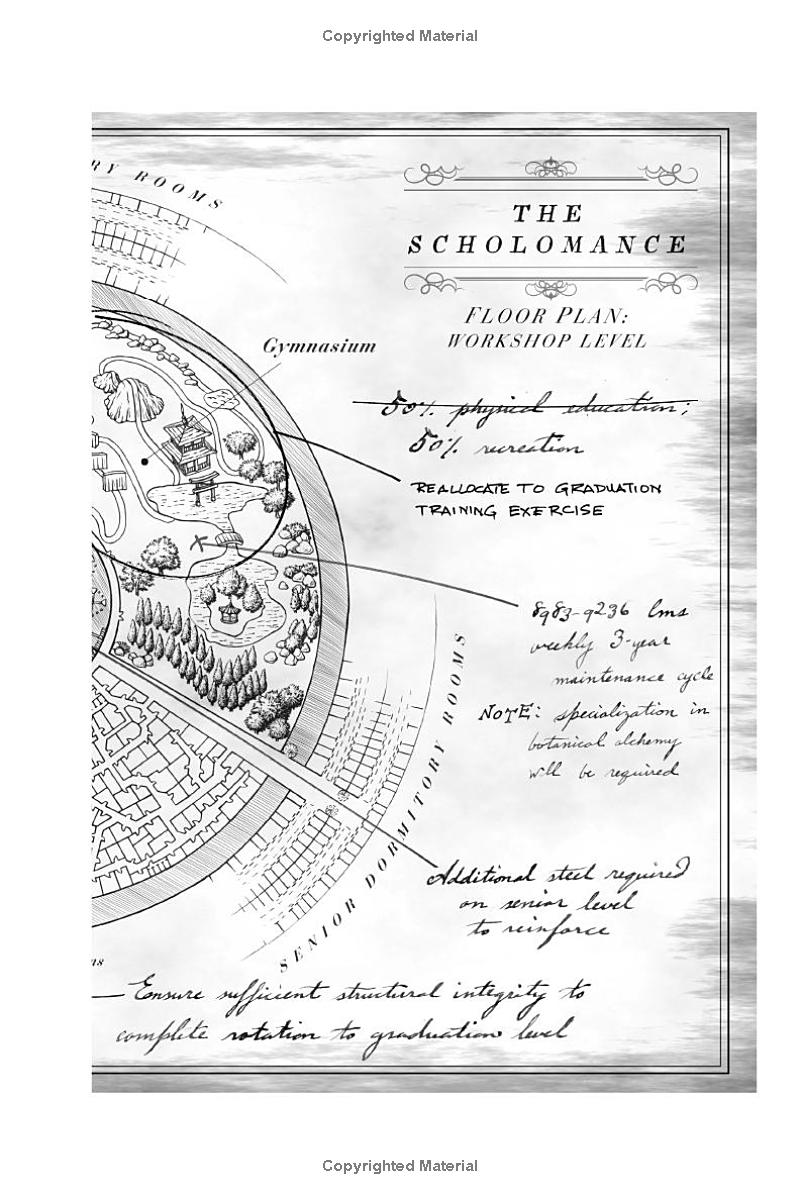 Copyrighted Material
RY ROOMS
THE
SCHOLOMANCE
FLOOR PLAN:
WORKSHOP LEVEL
Gymnasium
50% physical education;
50% recreation
REALLOCATE TO GRADUATION
TRAINING EXERCISE
8983-9236 lms
weekly 3-year
maintenance cycle
NOTE: specialization in
botanical alchemy
will be required
SENIOR DORMITORY ROOMS
Additional steel required
on senior level
to reinforce
ms
Ensure sufficient structural integrity to
complete rotation to graduation level
Copyrighted Material